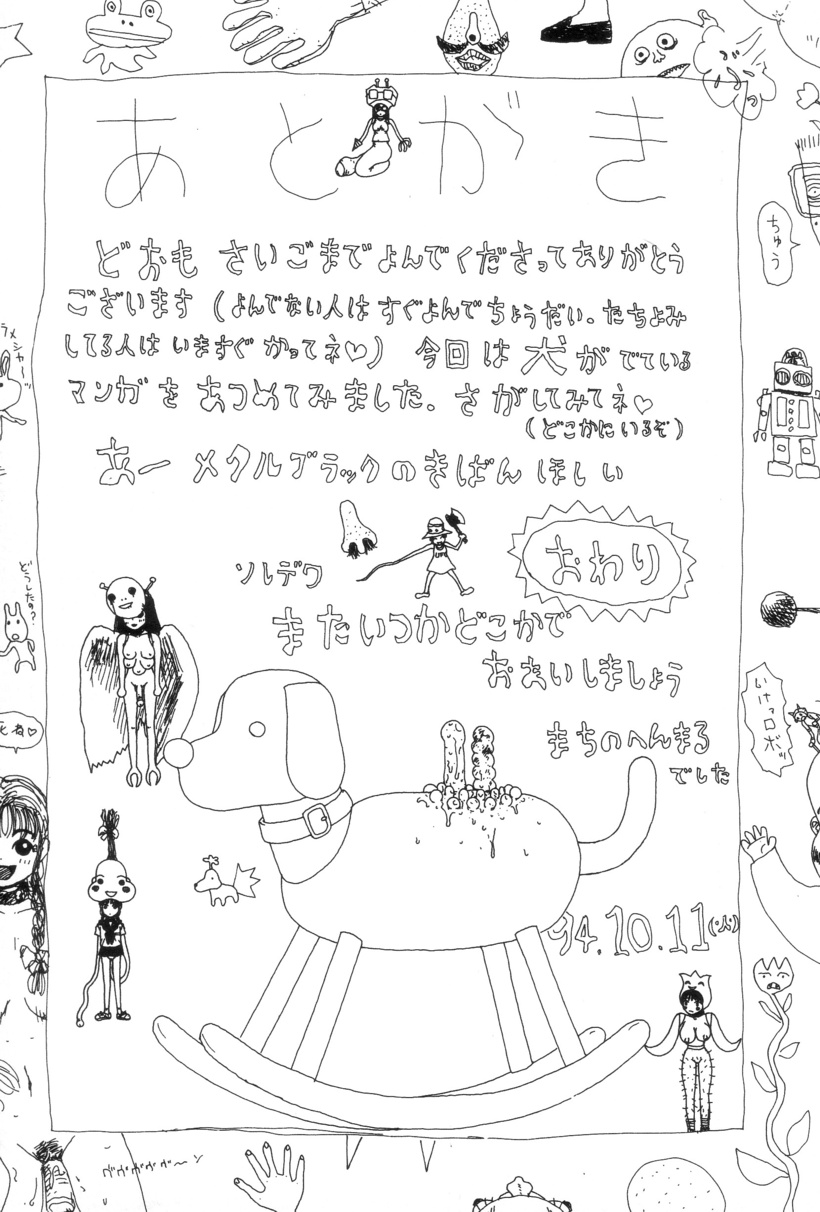 あとがき
どおも さいごまでよんでくださってありがとう
ございます(よんでない人は すぐよんでちょうだい.たちよみ
してる人は いますぐ かってネ♡) 今回は 犬が でている
マンガを あつめてみました. さがしてみてネ♡
(どこかにいるぞ)
あー メタルブラックのきばん ほしい
ソレデワ
おわり
またいつかどこかで
おあいしましょう
まちのへんまる
でした
94.10.11(火)
ちゅう
どうしたの?
死ね♡
いけァロボッ